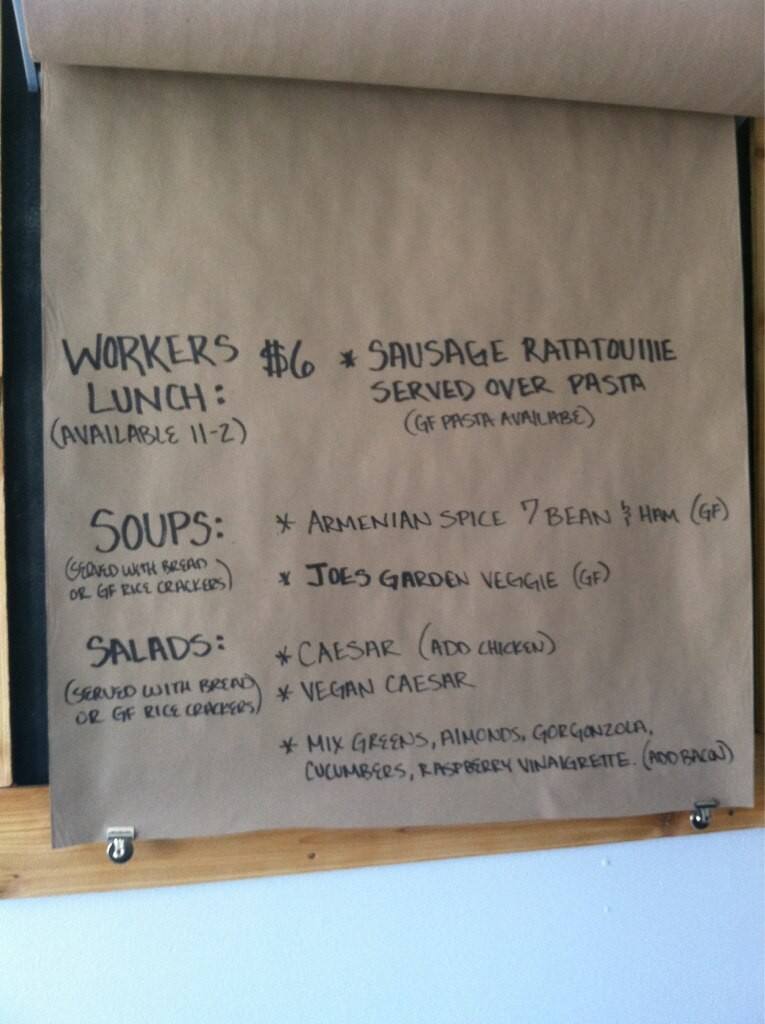 WORKERS $6 * SAUSAGE RATATOUILLE
LUNCH: SERVED OVER PASTA
(AVAILABLE 11-2) (GF PASTA AVAILABE)
SOUPS: * ARMENIAN SPICE 7 BEAN & HAM (GF)
(SERVED WITH BREAD
OR GF RICE CRACKERS) * JOES GARDEN VEGGIE (GF)
SALADS: * CAESAR (ADD CHICKEN)
(SERVED WITH BREAD * VEGAN CAESAR
OR GF RICE CRACKERS)
* MIX GREENS, ALMONDS, GORGONZOLA,
CUCUMBERS, RASPBERRY VINAIGRETTE. (ADD BACON)